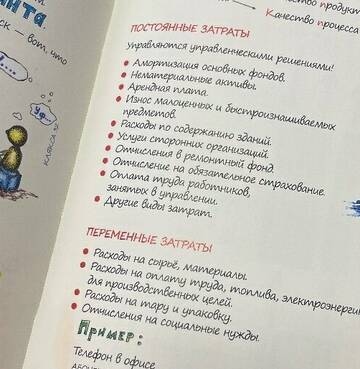 АНТА.
ск – вот, что
Качество процесса
ПОСТОЯННЫЕ ЗАТРАТЫ
Управляются управленческими решениями!
• Амортизация основных фондов.
• Нематериальные активы.
• Арендная плата.
• Износ малоценных и быстроизнашиваемых
предметов.
• Расходы по содержанию зданий.
• Услуги сторонних организаций.
• Отчисления в ремонтный фонд.
• Отчисление на обязательное страхование.
• Оплата труда работников,
занятых в управлении.
• Другие виды затрат.
ПЕРЕМЕННЫЕ ЗАТРАТЫ
• Расходы на сырьё, материалы.
• Расходы на оплату труда, топлива, электроэнергии
для производственных целей.
• Расходы на тару и упаковку.
• Отчисления на социальные нужды.
Пример:
Телефон в офисе